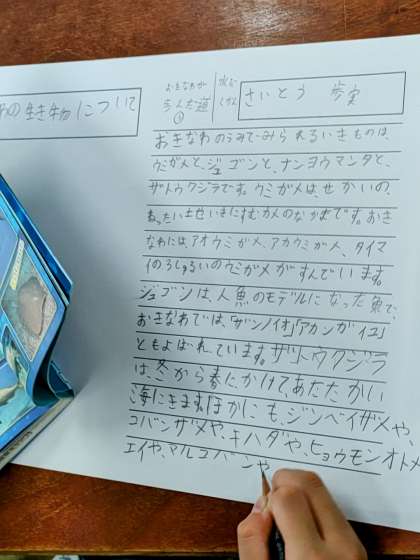 の生き物について
おきなわが
ちんだ海
①
水ぞくかん
さいとう 歩実
おきなわのうみでみられるいきものは、
ウミガメと、ジュゴンと、ナンヨウマンタと、
ザトウクジラです。ウミガメは、せかいの、
ねったい土せいきにすむカメのなかまです。おき
なわには、アオウミガメ、アカウミガメ、タイマ
イの3しゅるいのウミガメがすんでいます。
ジュゴンは、人魚のモデルになった魚で、
おきなわでは、「ザンノイオ」「アカンガイユ」
ともよばれています。ザトウクジラ
は、冬から春にかけて、あたたかい
海にきます。ほかにも、ジンベイザメや
コバンザメや、キハダや、ヒョウモンオトメ
エイや、マルコバンや